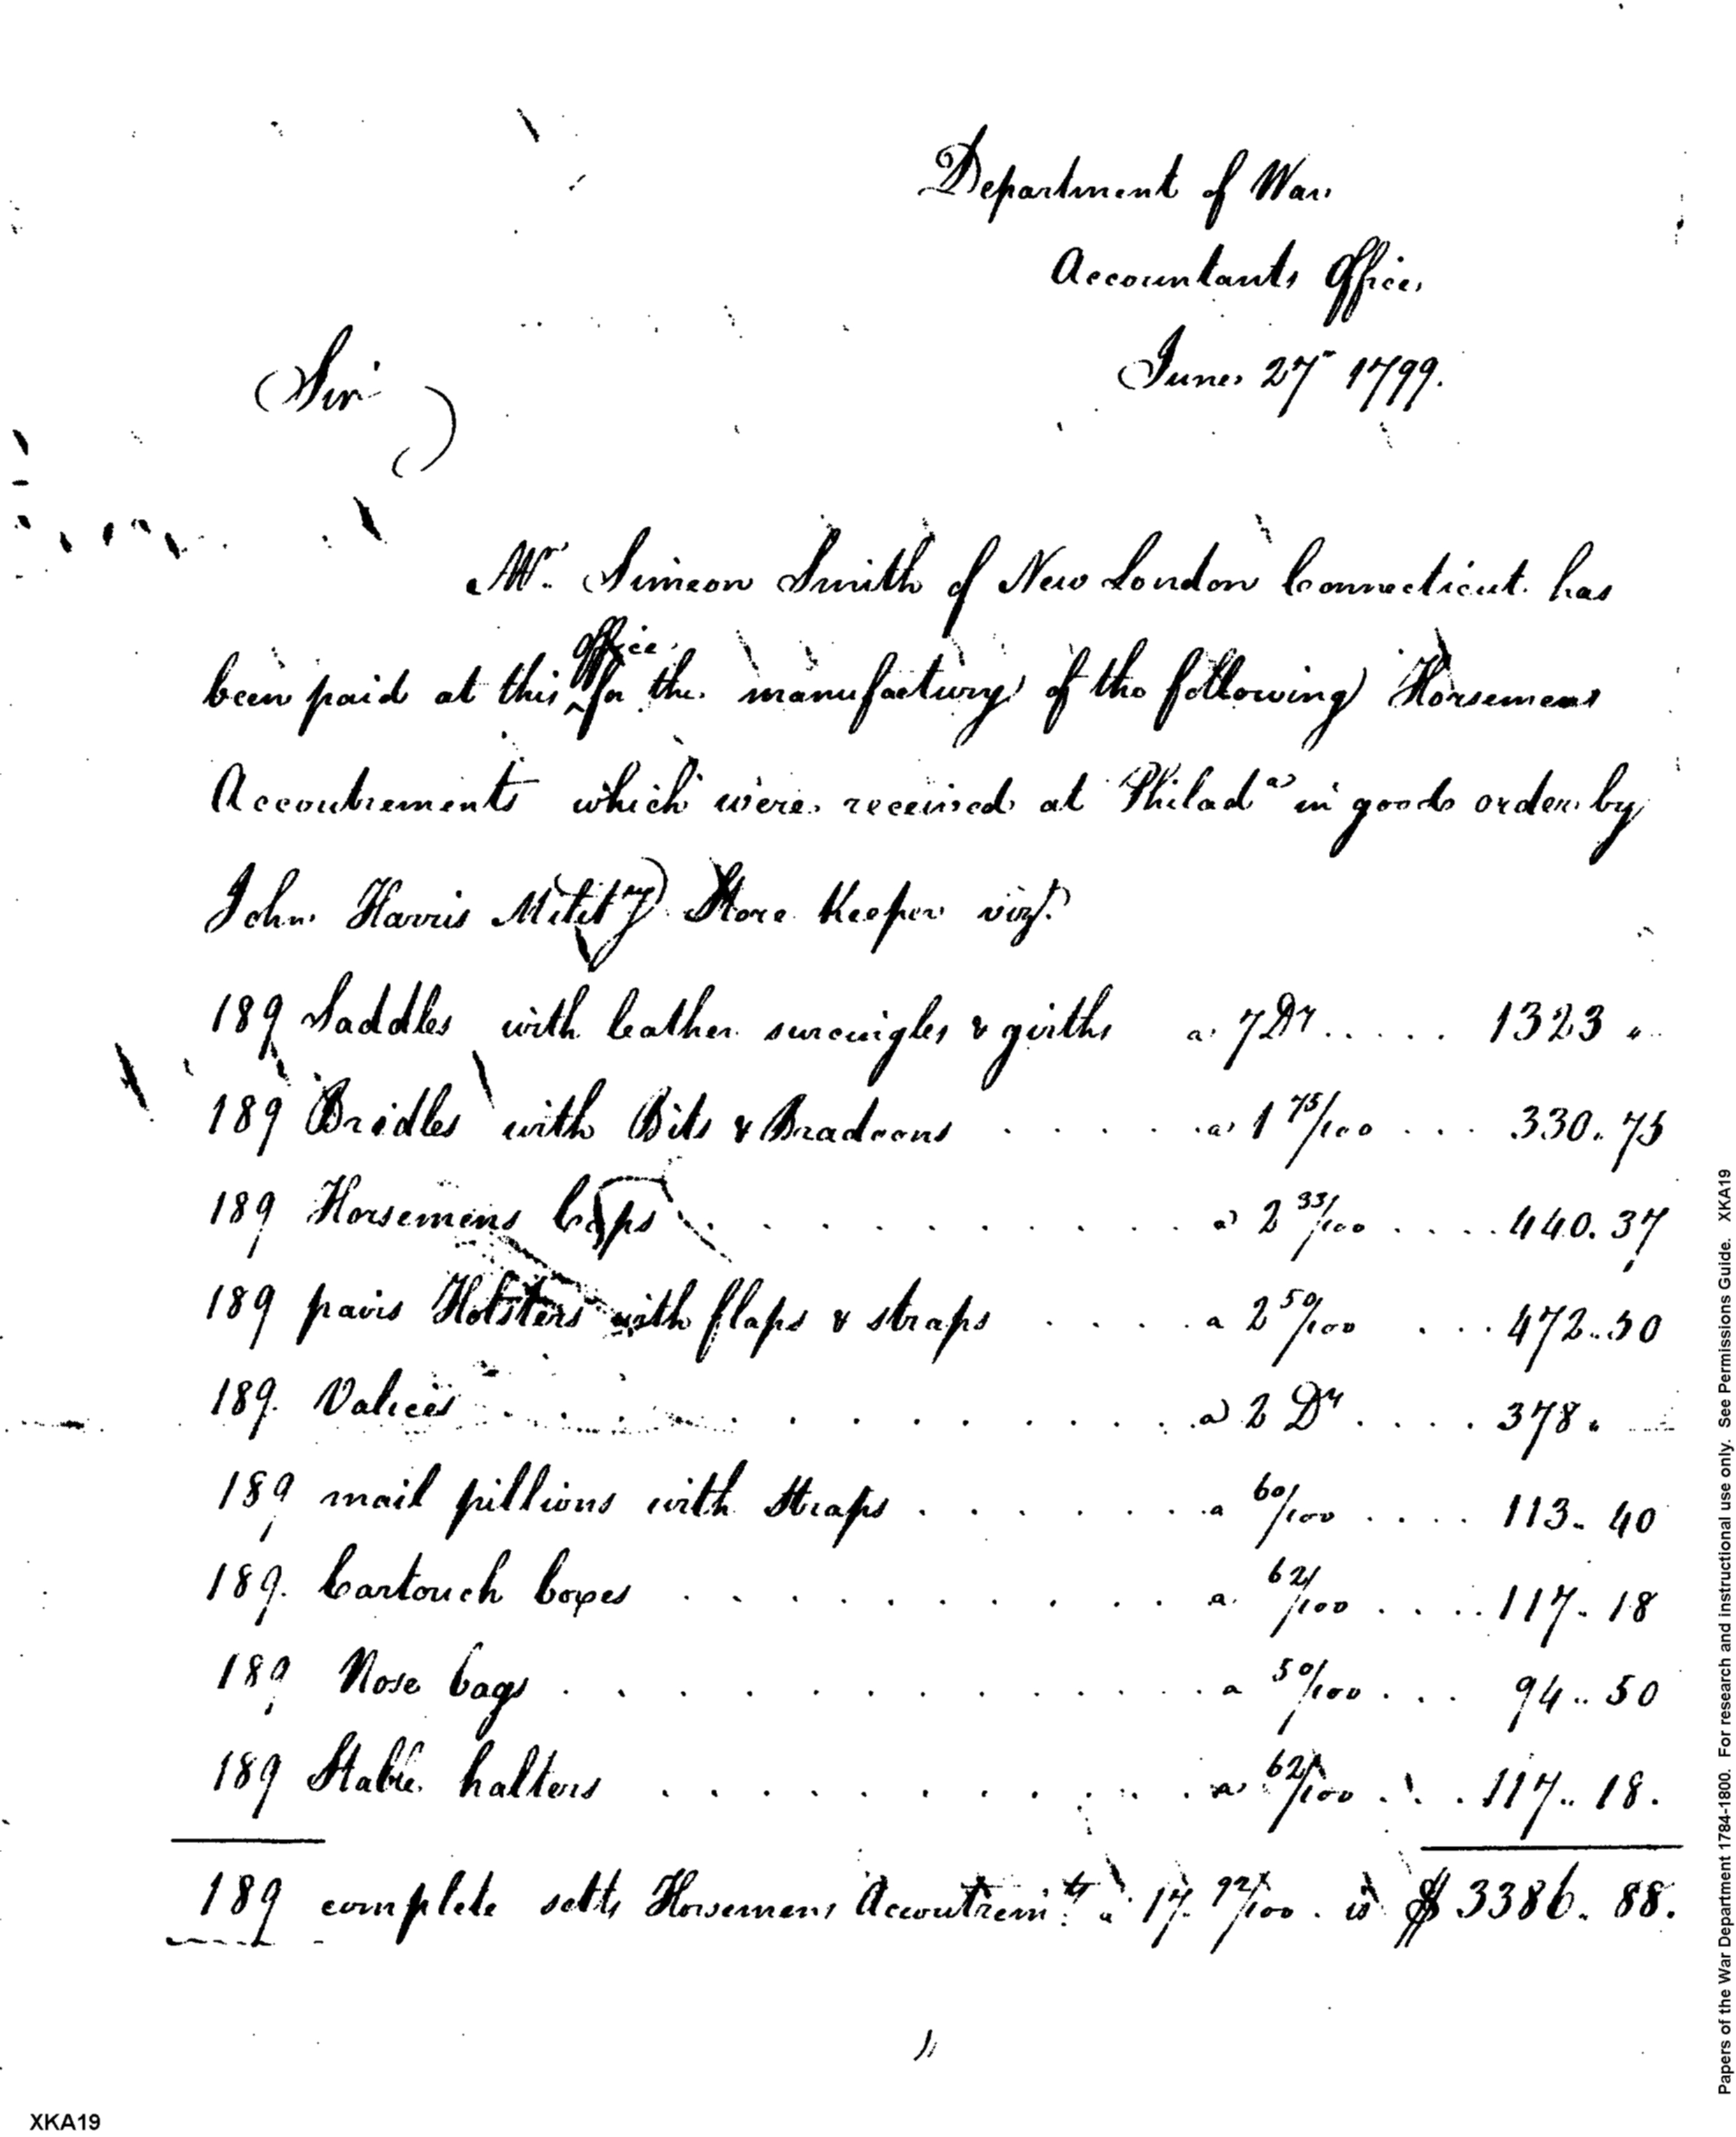 Department of War
Accountants Office
June 27 1799.
Sir
Mr. Simeon Smith of New London Connecticut has
office
been paid at this ‸ for the manufactury of the following Horsemens
Accoutrements which were received at Philada in good order by
John Harris Mility Store Keeper vizt.
189 Saddles with leather surcingles & girths a 7 Drs ..... 1323 "
189 Bridles with Bits & Bradoons ..... a 1 75/100 ... 330.75
189 Horsemens Caps .......... a 2 33/100 .... 440.37
189 pairs Holsters with flaps & straps .... a 2 50/100 ... 472..50
189. Valices ............ a 2 Drs .... 378 "
189 mail pillions with Straps ....... a 60/100 .... 113.. 40
189. Cartouch boxes .......... a 62/100 .... 117.. 18
189 Nose bags ............ a 50/100 ... 94.. 50
189 Stable halters .......... a 62/100 ... 117.. 18.
189 complete setts Horsemens Accoutremts a 17. 92/100 . is $ 3386. 88.
XKA19
Papers of the War Department 1784-1800. For research and instructional use only. See Permissions Guide. XKA19